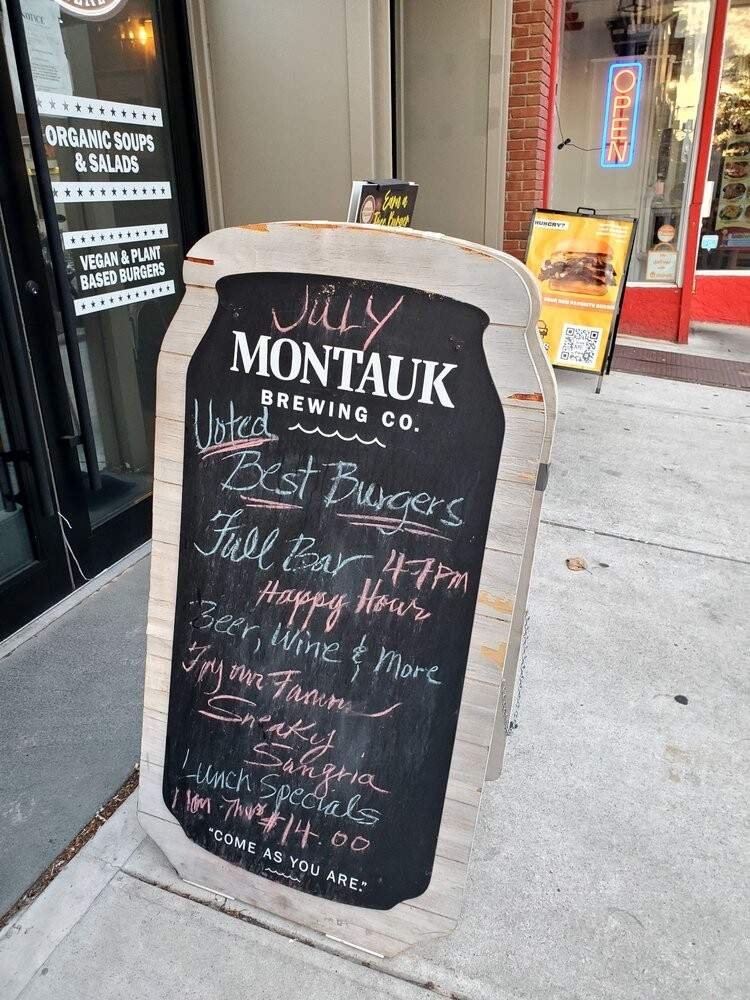 NOTICE
ORGANIC SOUPS
& SALADS
VEGAN & PLANT
BASED BURGERS
Earn a
Free Burger
OPEN
HUNGRY?
JULY
MONTAUK
BREWING CO.
Voted
Best Burgers
Full Bar 4-7PM
Happy Hour
Beer, Wine & More
Try our
Sneaky
Sangria
Lunch Specials
Mon-Thur $14.00
"COME AS YOU ARE."